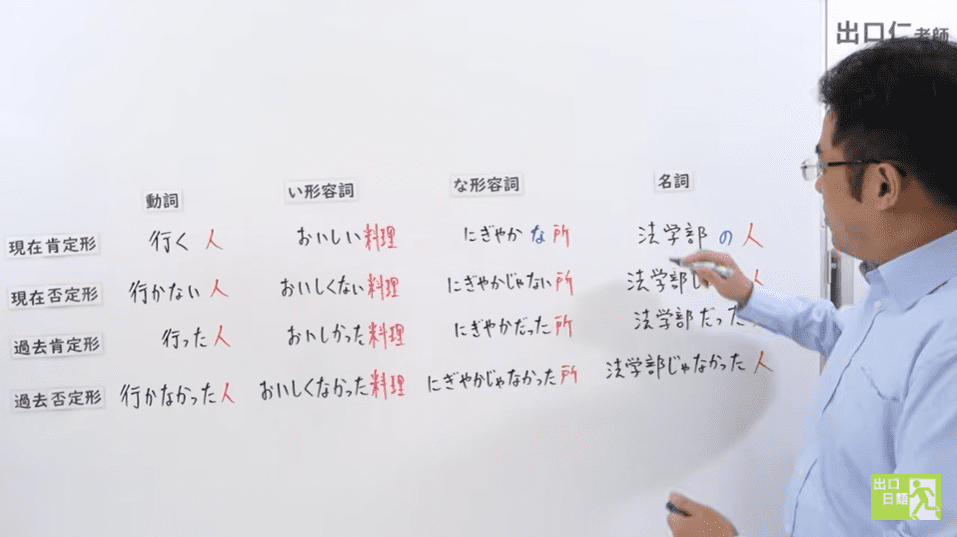 出口仁老師
動詞 い形容詞 な形容詞 名詞
現在肯定形 行く 人 おいしい料理 にぎやか な 所 法学部 の 人
現在否定形 行かない 人 おいしくない料理 にぎやかじゃない 所 法学部じ 人
過去肯定形 行った 人 おいしかった料理 にぎやかだった 所 法学部だった
過去否定形 行かなかった人 おいしくなかった料理 にぎやかじゃなかった 所 法学部じゃなかった 人
出口
日語